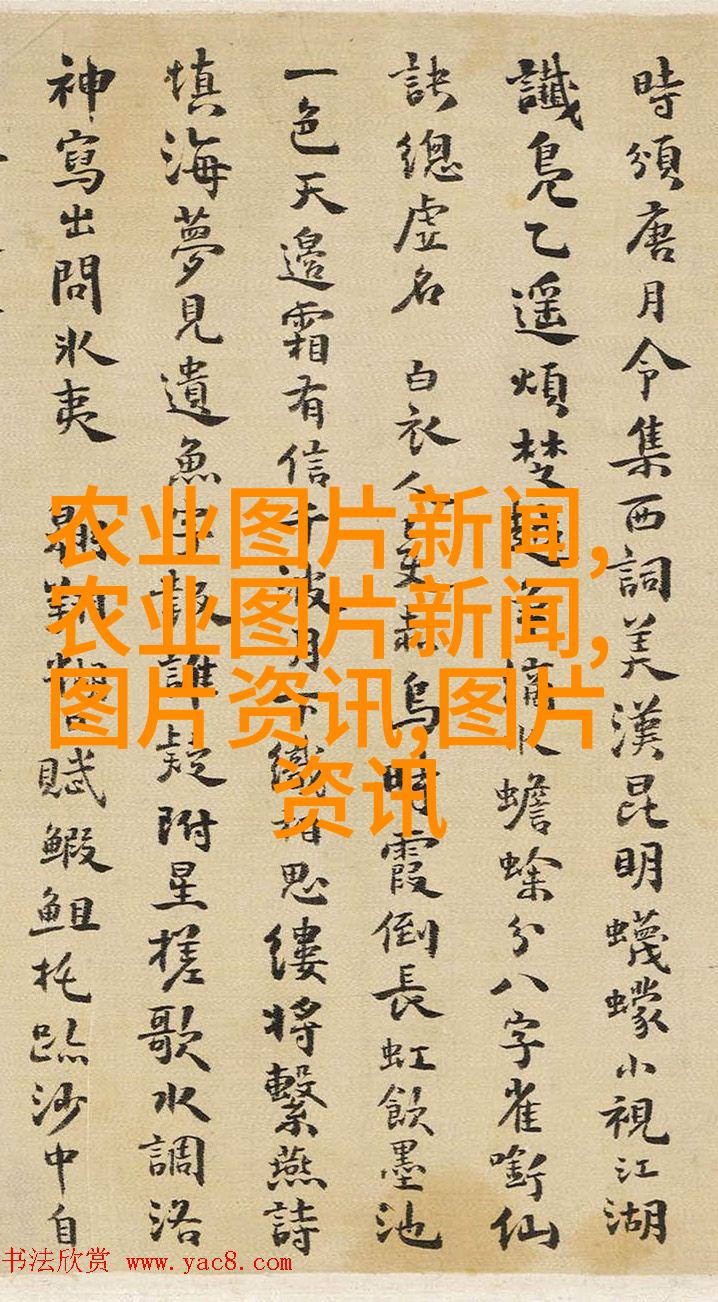 時頒唐月令集西詞美漢昆明蠛蠓小視江湖
讖鳧乙遥煩楚蟾蜍分八字雀銜仙
訣總虚名 白衣人時霞倒長虹飲墨池
一色天邊霜有信千波月下織相思縷將繫燕詩
填海夢見遺魚字報誰疑附星槎歌水調洛
神寫出問冰夷 賦鰕䱉托跡沙中自
农业图片新闻,
农业图片新闻,
图片资讯,图片
资讯
书法欣赏 www.yac8.com